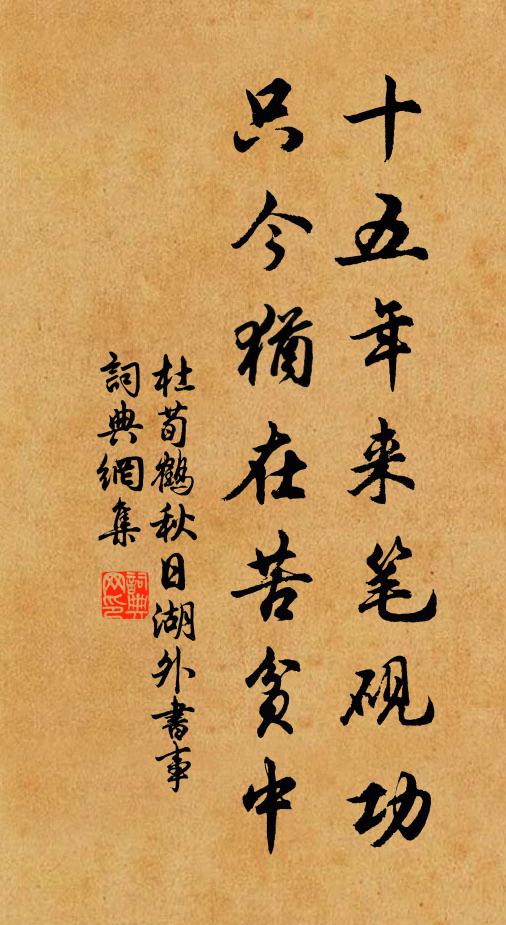 十五年来笔砚功
只今犹在苦贫中
杜荀鶴秋日湖外書事
詞典網集
詞典网印